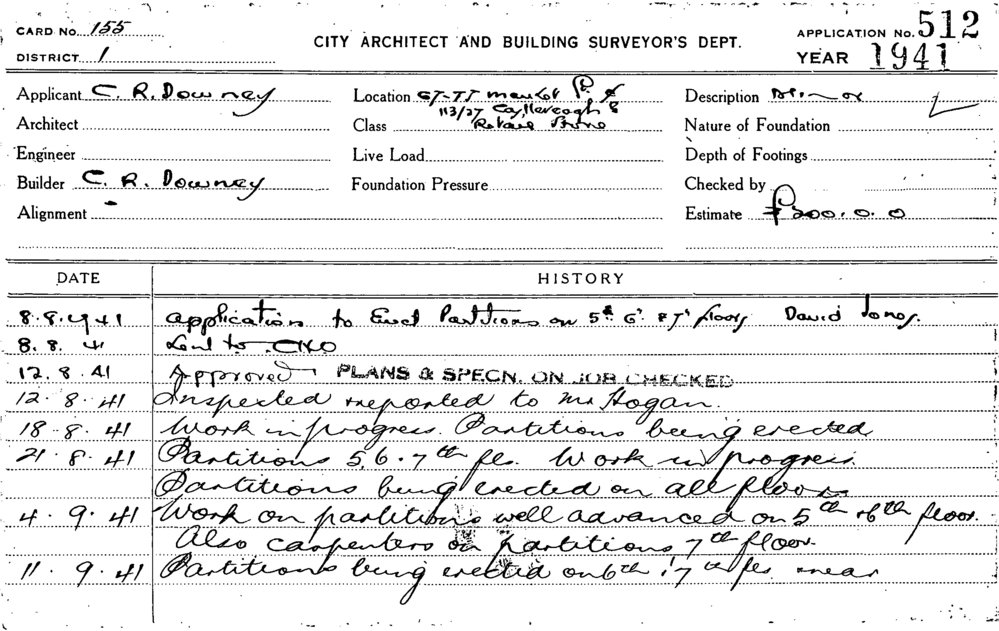 CARD No. 155
DISTRICT 1
CITY ARCHITECT AND BUILDING SURVEYOR'S DEPT.
APPLICATION No. 512
YEAR 1941
Applicant C. R. Downey
Architect
Engineer
Builder C. R. Downey
Alignment -
Location 67-77 market St. &
113/27 Castlereagh S
Class Retail Store
Live Load
Foundation Pressure
Description minor
Nature of Foundation
Depth of Footings
Checked by
Estimate £200.0.0
DATE HISTORY
8.8.1941 Application to Erect Partitions on 5th 6th & 7th floors David Jones.
8.8.41 Sent to
12.8.41 Approved PLANS & SPECN. ON JOB CHECKED
12.8.41 Inspected & reported to Mr Hogan.
18.8.41 Work in progress. Partitions being erected
21.8.41 Partitions 5, 6. 7th fls. Work in progress.
Partitions being erected on all floors
4.9.41 Work on partitions well advanced on 5th & 6th floor.
Also carpenters on partitions 7th floor.
11 9.41 Partitions being erected on 6th & 7th fls near